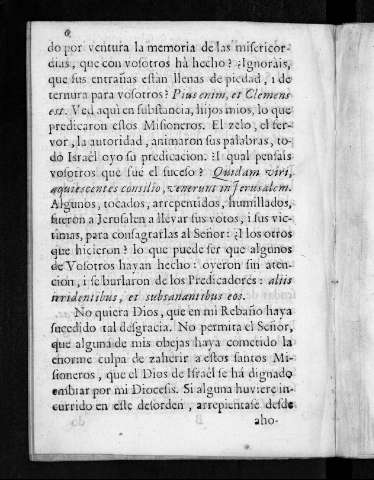 6
do por ventura la memoria de las misericor-
dias, que con vosotros hà hecho? ¿Ignorais,
que sus entrañas estàn llenas de piedad, i de
ternura para vosotros? Pius enim, et Clemens
est. Ved aquì en substancia, hijos mios, lo que
predicaron estos Misioneros. El zelo, el fer-
vor, la autoridad, animaron sus palabras, to-
do Israèl oyo su predicacion. ¿I qual pensais
vosotros que fue el suceso? Quidam viri,
aquiescentes consilio, venerunt in Jerusalem.
Algunos, tocados, arrepentidos, humillados,
fueron a Jerusalen a llevar sus votos, i sus vic-
timas, para consagratlas al Señor: ¿I los otros
que hicieron? lo que puede ser que algunos
de Vosotros hayan hecho: oyeron sin aten-
cion, i se burlaron de los Predicadores: aliis
irridentibus, et subsanantibus eos.
No quiera Dios, que en mi Rebaño haya
sucedido tal desgracia. No permita el Señor,
que alguna de mis obejas haya cometido la
enorme culpa de zaherir a estos santos Mi-
sioneros, que el Dios de Israèl se hà dignado
embiar por mi Diocesis. Si alguna huviere in-
currido en este desorden, arrepientase desde
aho-